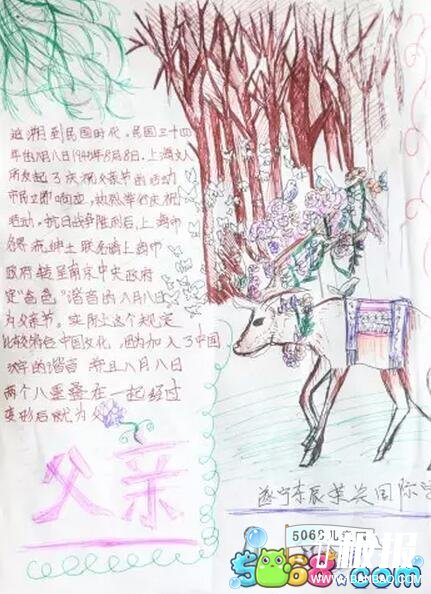 追溯到民国时代。民国三十四
年也八月八日1945年8月8日,上海文人
所发起了庆祝父亲节的活动
市民立即响应,热烈举行庆祝
活动。抗日战争胜利后,上海市
各界 绅士 联名请上海市
政府转呈南京中央政府
定“爸爸”谐音的八月八日
为父亲节。实际上这个规定
比较符合中国文化,因为加入了中国
文字的谐音 并且八月八日
两个八重叠在一起经过
变形后就为父
父亲
遂宁东辰 国际
5068儿
5068.com
WWW.BANBAO.COM